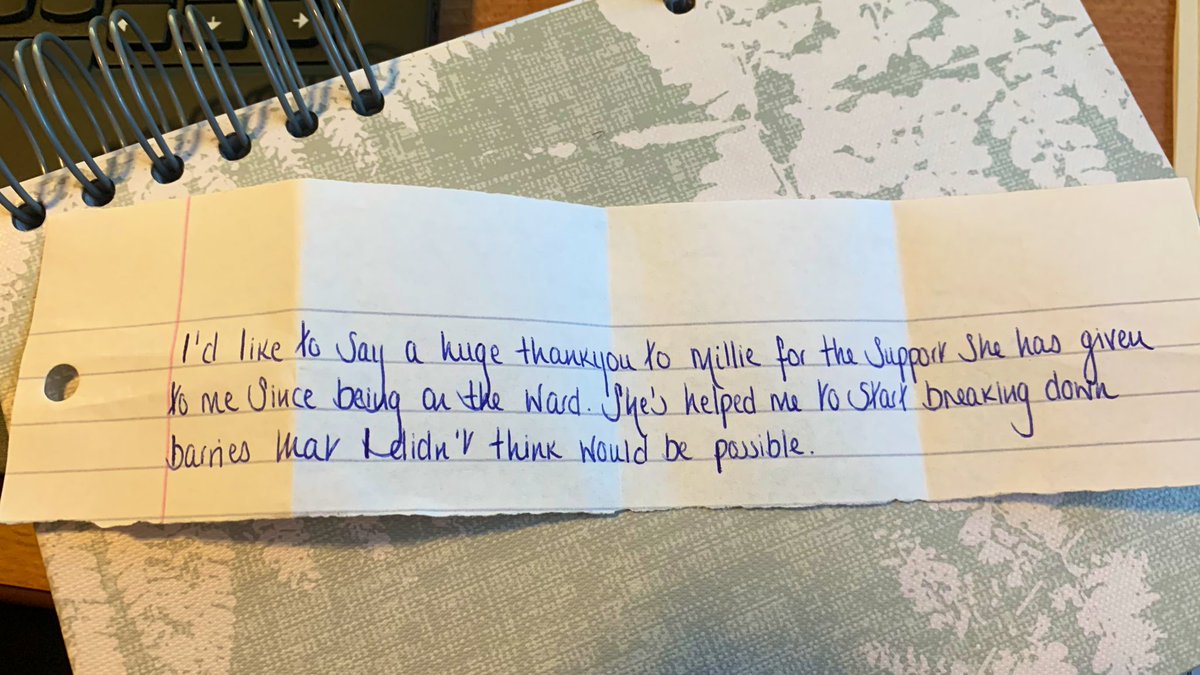 I'd like to say a huge thankyou to Millie for the support she has given
to me since being on the ward. She's helped me to start breaking down
barries that I didn't think would be possible.